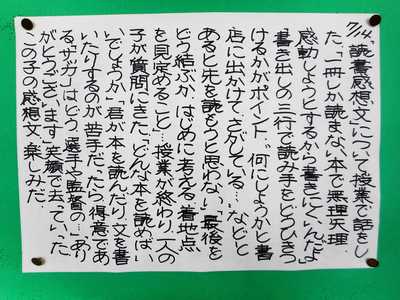 7/14.読書感想文について授業で話をし
た。「一冊しか読まない本で無理矢理
感動しようとするから書きにくいんだよ」
「書き出しの三行で読み手をどうひきつ
けるかがポイント」「何にしようかと書
店に出かけてさがしている…などと
あると先を読もうと思わない」「最後を
どう結ぶか、はじめに考える。着地点
を見定めること」…授業が終わり、一人の
子が質問にきた。「どんな本を読めばい
いでしょうか」「君が本を読んだり、文を書
いたりするのが苦手だったら、得意であ
る"サッカー"はどう。選手や監督の…」「あり
がとうございます」笑顔で去っていった。
この子の感想文、楽しみだ。